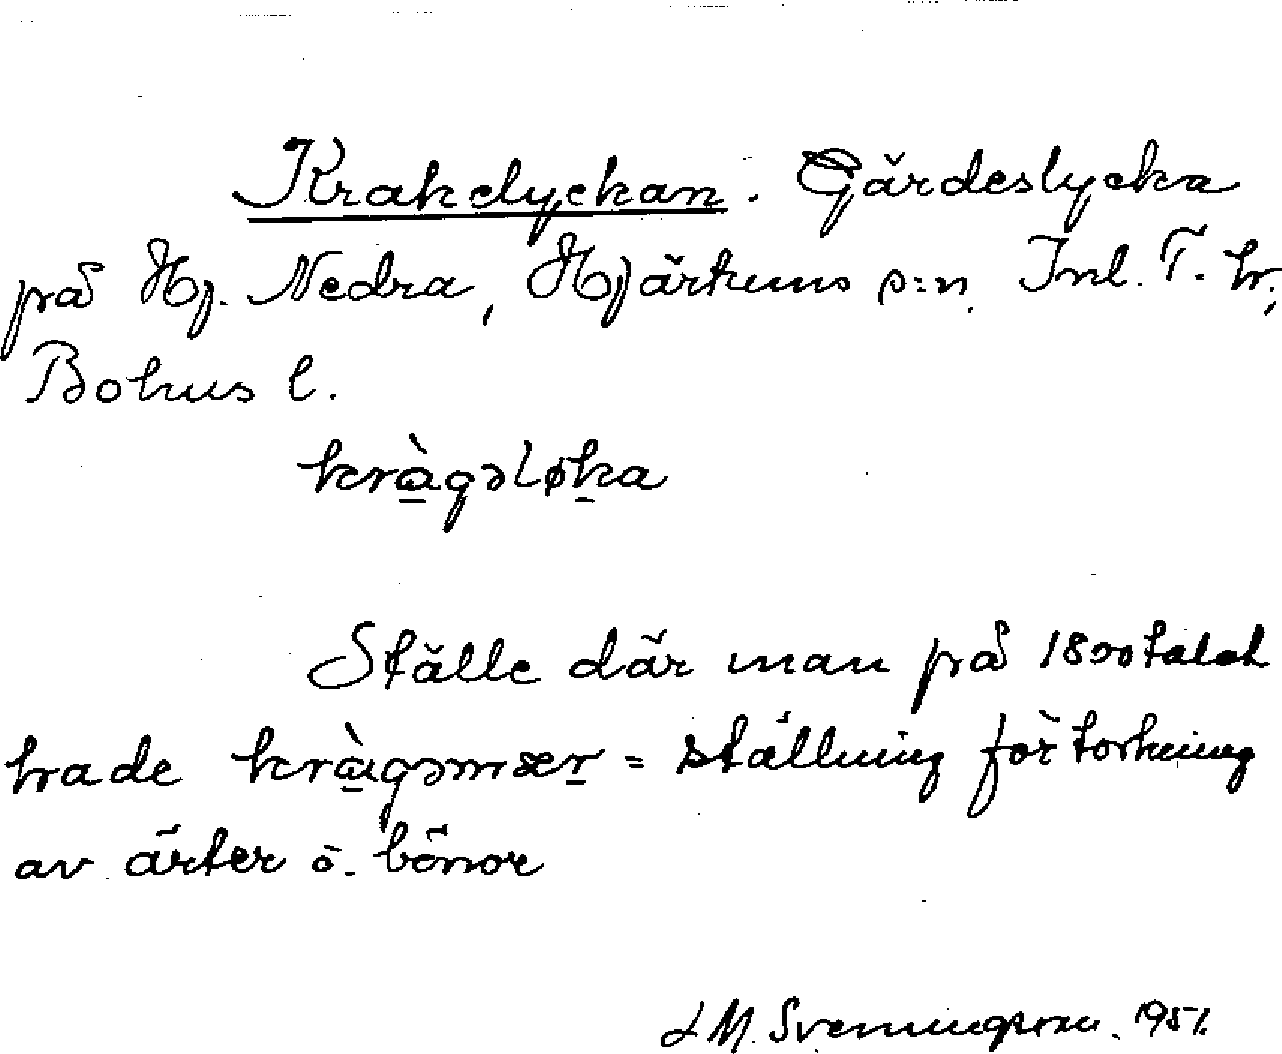 Krakelyckan. Gärdeslycka
på Hj. Nedra, Hjärtums s:n. Inl. T. hr,
Bohus l.
kràgəløka
Ställe där man på 1800talet
hade kràgəmær = ställning för torkning
av ärter o. bönor
L M. Svenungsson. 1951.